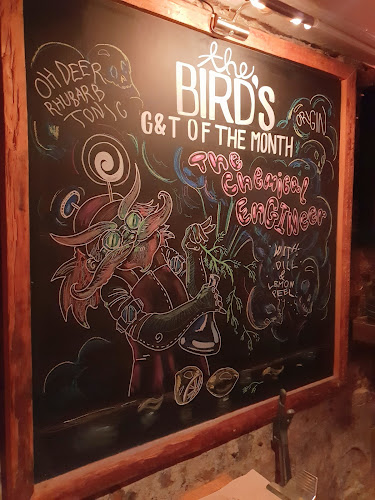 the
BIRD'S
G&T OF THE MONTH
OH DEER
RHUBARB
TONIC
ORIGIN
THE
CHEMICAL
ENGINEER
WITH
DILL
&
LEMON
PEEL